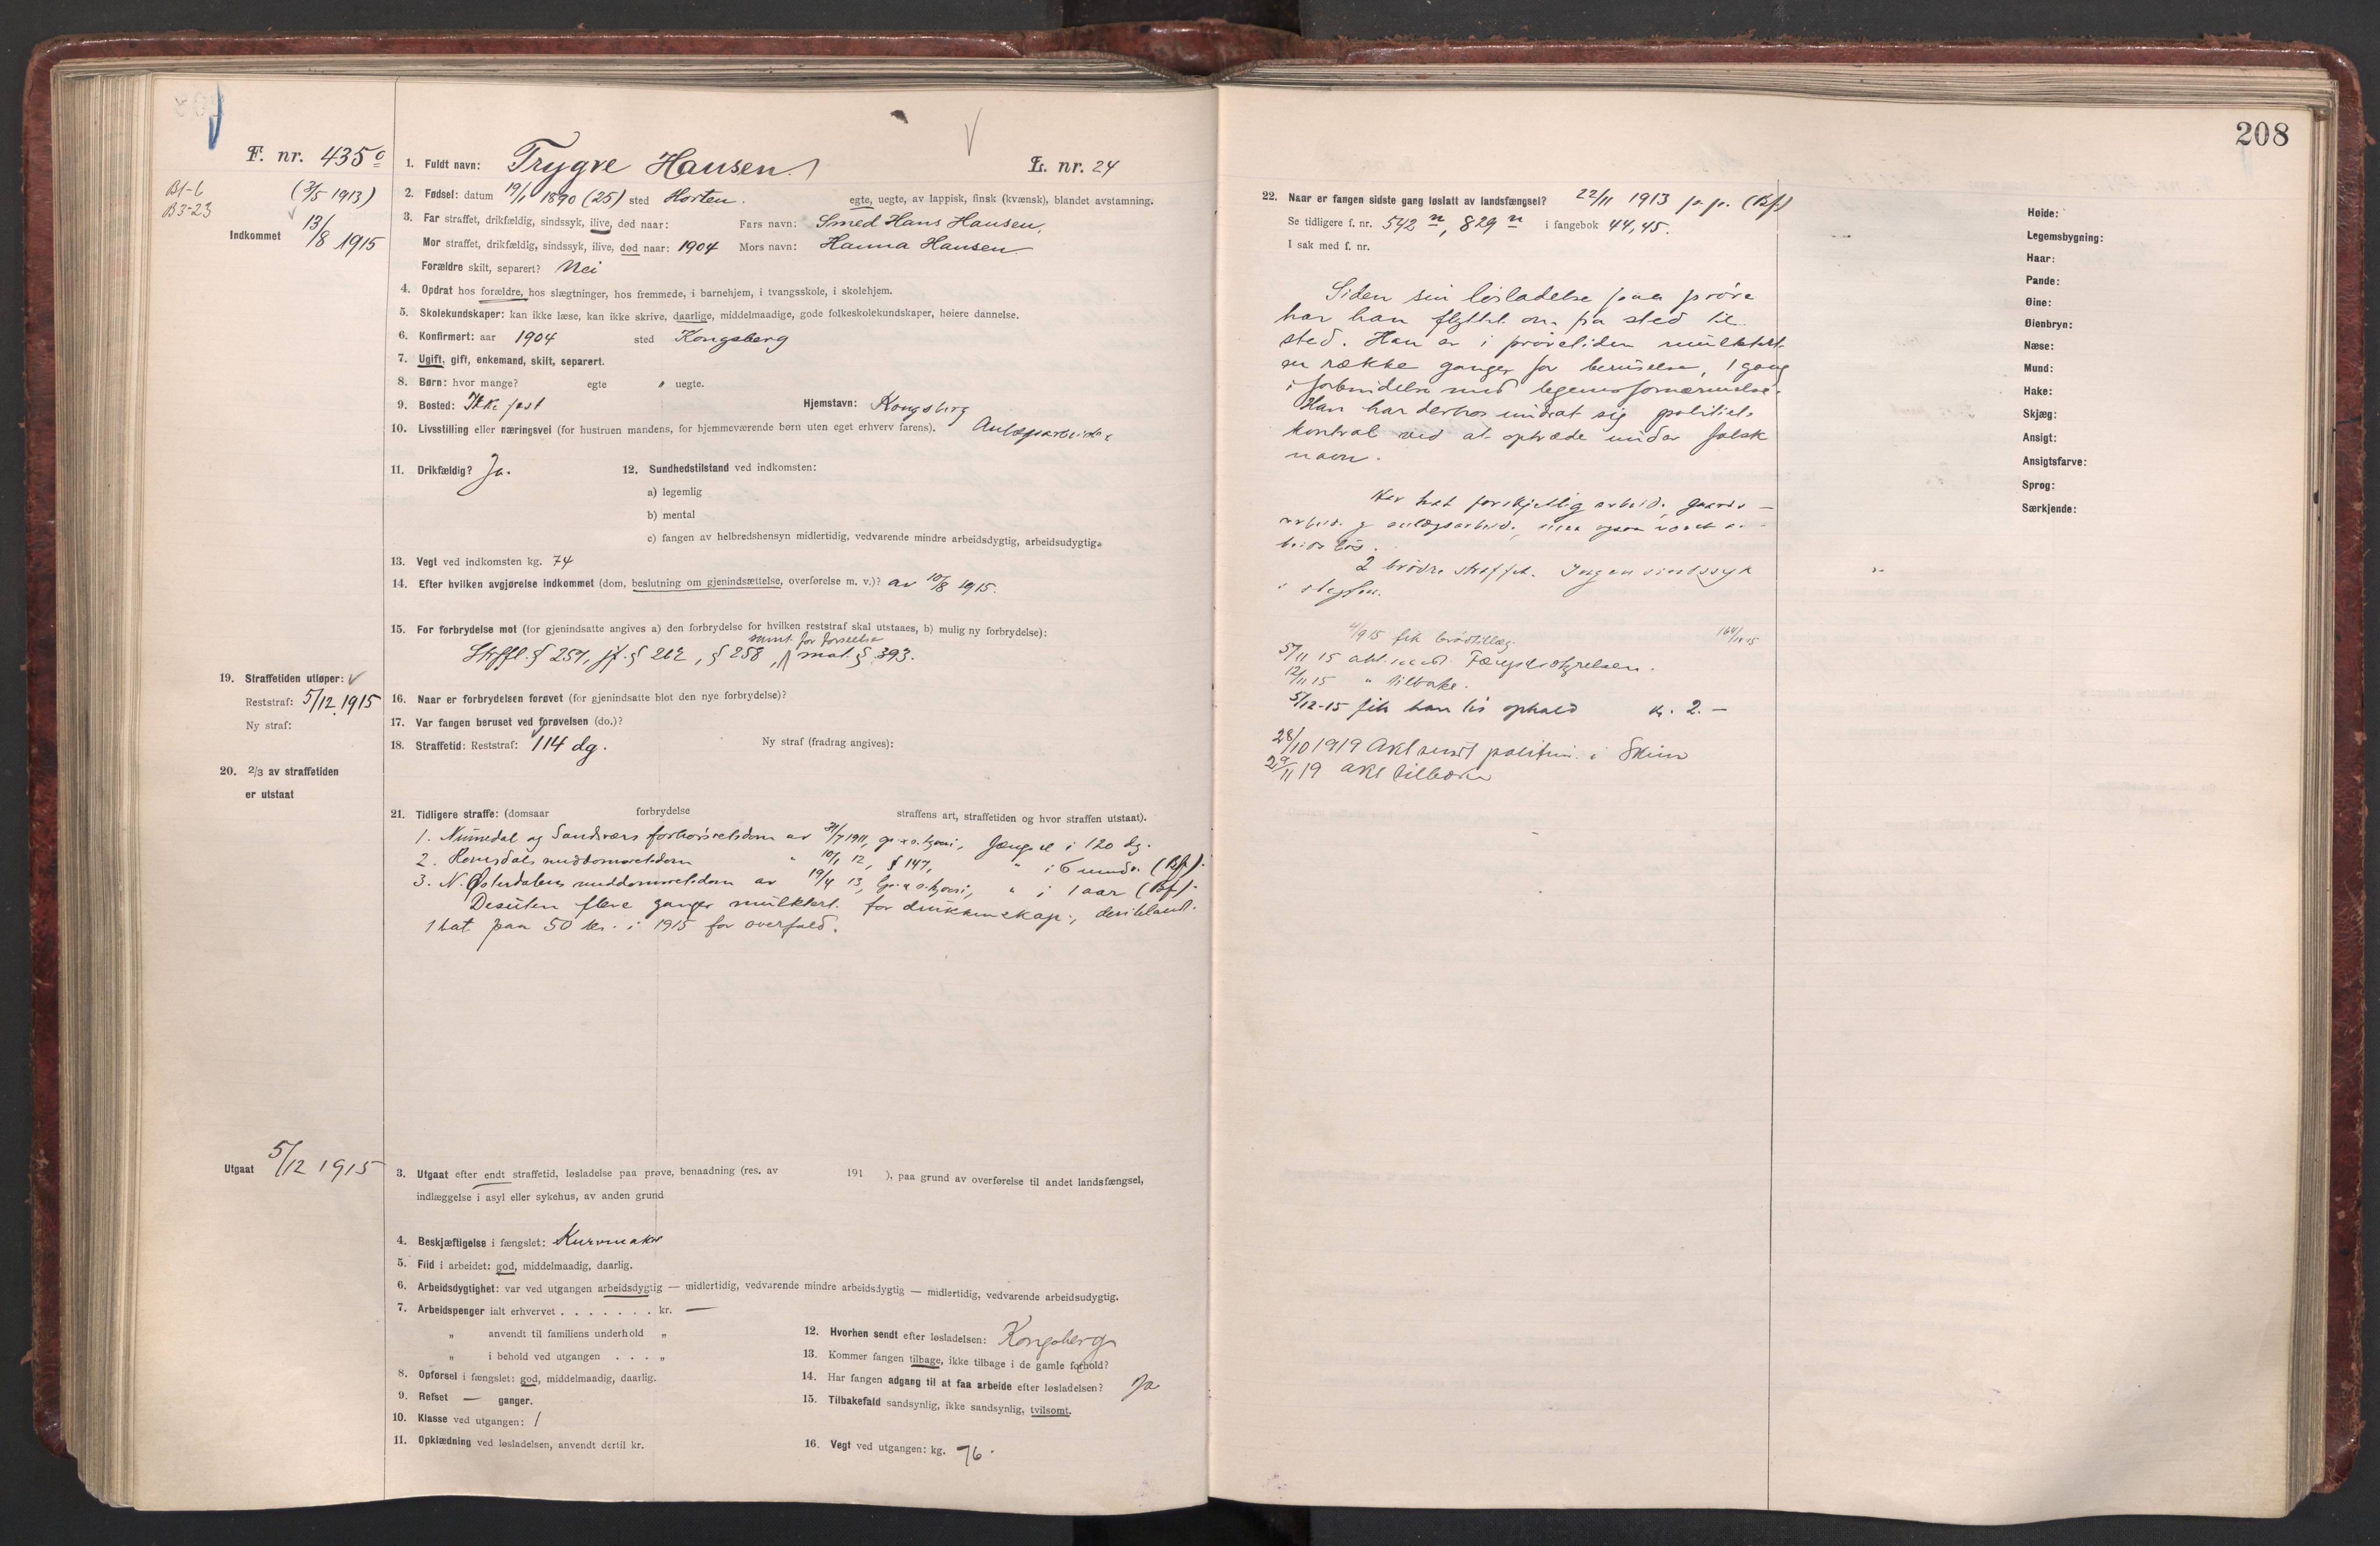 208
F. nr. 435 c
B1-6
B3-23
(3/5 1913)
Indkommet 13/8 1915
1. Fuldt navn: Trygve Hansen
L. nr. 24
2. Fødsel: datum 19/1 1890 (25) sted Horten. egte, uegte, av lappisk, finsk (kvænsk), blandet avstamning.
3. Far straffet, drikfældig, sindssyk, ilive, død naar: Fars navn: Smed Hans Hansen.
Mor straffet, drikfældig, sindssyk, ilive, død naar: 1904 Mors navn: Hanna Hansen
Forældre skilt, separert? Nei
4. Opdrat hos forældre, hos slægtninger, hos fremmede, i barnehjem, i tvangsskole, i skolehjem.
5. Skolekundskaper: kan ikke læse, kan ikke skrive, daarlige, middelmaadige, gode folkeskolekundskaper, høiere dannelse.
6. Konfirmert: aar 1904 sted Kongsberg
7. Ugift, gift, enkemand, skilt, separert.
8. Børn: hvor mange? egte uegte.
9. Bosted: Ikke fast Hjemstavn: Kongsberg
10. Livsstilling eller næringsvei (for hustruen mandens, for hjemmeværende børn uten eget erhverv farens). Anlægsarbeider
11. Drikfældig? Ja.
12. Sundhedstilstand ved indkomsten:
a) legemlig
b) mental
c) fangen av helbredshensyn midlertidig, vedvarende mindre arbeidsdygtig, arbeidsudygtig.
13. Vegt ved indkomsten kg. 74
14. Efter hvilken avgjørelse indkommet (dom, beslutning om gjenindsættelse, overførelse m. v.)? av 10/8 1915.
15. For forbrydelse mot (for gjenindsatte angives a) den forbrydelse for hvilken reststraf skal utstaaes, b) mulig ny forbrydelse):
samt for forseelse
Strfl. § 257, jf. § 262, § 258, mot § 393.
19. Straffetiden utløper:
Reststraf: 5/12 1915
Ny straf:
16. Naar er forbrydelsen forøvet (for gjenindsatte blot den nye forbrydelse)?
17. Var fangen beruset ved forøvelsen (do.)?
18. Straffetid: Reststraf: 114 dg. Ny straf (fradrag angives):
20. 2/3 av straffetiden
er utstaat
21. Tidligere straffe: (domsaar forbrydelse straffens art, straffetiden og hvor straffen utstaat).
1. Numedal og Sandsværs forhørsretsdom av 31/7 1911, fængsel i 120 dg.
2. Romsdals meddomsretsdom " 10/1 12, § 147, " i 6 mndr. (Bf.).
3. N. Østerdalens meddomsretsdom av 19/4 13, " i 1 aar (Bf.).
Desuten flere ganger mulktert for drukkenskap, deriblandt
1 bot paa 50 kr. i 1915 for overfald.
Utgaat 5/12 1915
3. Utgaat efter endt straffetid, løsladelse paa prøve, benaadning (res. av 191 ), paa grund av overførelse til andet landsfængsel,
indlæggelse i asyl eller sykehus, av anden grund
4. Beskjæftigelse i fængslet: Kurvmaker
5. Flid i arbeidet: god, middelmaadig, daarlig.
6. Arbeidsdygtighet: var ved utgangen arbeidsdygtig — midlertidig, vedvarende mindre arbeidsdygtig — midlertidig, vedvarende arbeidsudygtig.
7. Arbeidspenger ialt erhvervet . . . . . . . kr. —
" anvendt til familiens underhold "
" i behold ved utgangen . . . "
8. Opførsel i fængslet: god, middelmaadig, daarlig.
9. Refset — ganger.
10. Klasse ved utgangen: 1
11. Opklædning ved løsladelsen, anvendt dertil kr.
12. Hvorhen sendt efter løsladelsen: Kongsberg
13. Kommer fangen tilbage, ikke tilbage i de gamle forhold?
14. Har fangen adgang til at faa arbeide efter løsladelsen? Ja
15. Tilbakefald sandsynlig, ikke sandsynlig, tvilsomt.
16. Vegt ved utgangen: kg. 76.
22. Naar er fangen sidste gang løslatt av landsfængsel? 22/11 1913 p. p. (Bf)
Se tidligere f. nr. 542 n, 829 n i fangebok 44, 45.
I sak med f. nr.
Siden sin løsladelse paa prøve
har han flyttet om fra sted til
sted. Han er i prøvetiden mulktert
en række ganger for beruselse, 1 gang
i forbindelse med legemsfornærmelse.
Han har derhos undrat sig politiets
kontrol ved at optræde under falsk
navn.
Har hat forskjellig arbeide, gaards-
arbeid og anlægsarbeide, men ogsaa været ar-
beidsløs.
2 brødre straffet. Ingen sindssyk
i slegten.
4/9 15 fik brødtillæg.
5/11 15 akt sendt Fængselsstyrelsen.
12/11 15 " tilbake.
5/12-15 fik han til ophold kr. 2.—
28/10 1919 Akt sendt politim. i Skien
29/11 19 akt tilbake
Høide:
Legemsbygning:
Haar:
Pande:
Øine:
Øienbryn:
Næse:
Mund:
Hake:
Skjæg:
Ansigt:
Ansigtsfarve:
Sprog:
Særkjende: